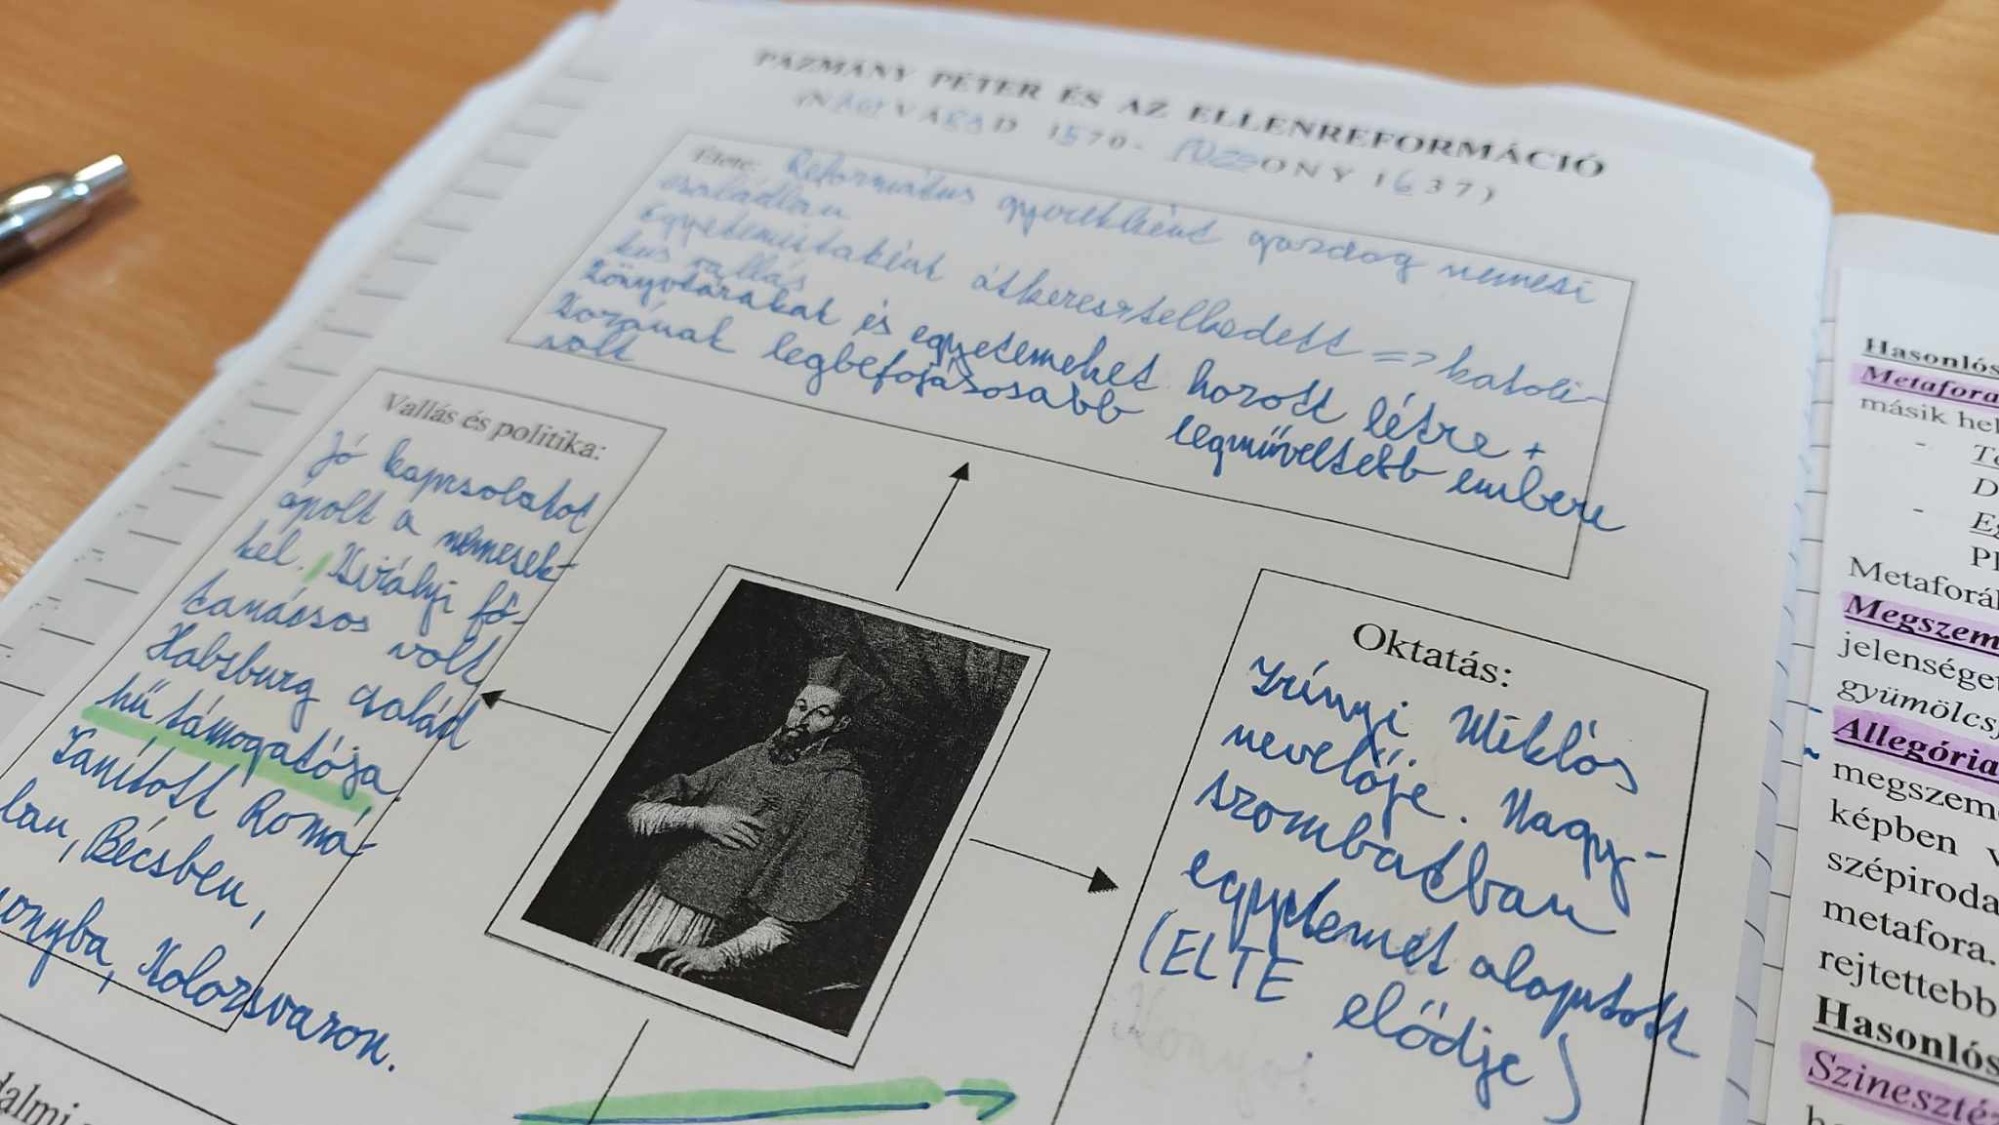 PÁZMÁNY PÉTER ÉS AZ ELLENREFORMÁCIÓ
(NAGYVÁRAD 1570- POZSONY 1637)
Élete: Református gyerekként gazdag nemesi
családban
Egyetemistaként átkeresztelkedett => katoli-
kus vallás
Könyvtárakat és egyetemeket hozott létre +
Korának legbefojásosabb legműveltebb embere
volt
Vallás és politika:
Jó kapcsolatot
ápolt a nemesek-
kel. Királyi fő-
tanácsos volt
Habsburg család
hű támogatója.
Tanított Romá-
ban, Bécsben,
onyba, Kolozsvaron.
Oktatás:
Zrínyi Miklós
nevelője. Nagy-
szombatban
egyetemet alapított
(ELTE elődje)
dalmi
Hasonlós
Metafora
másik hel
- 
D
- 
Metaforál
Megszem
jelensége
gyümölcs
Allegória
megszem
képben v
szépiroda
metafora.
rejtettebb
Hasonlós
Szineszté